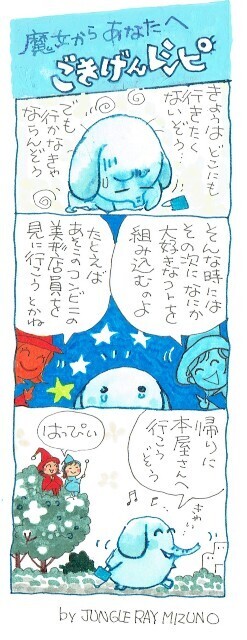 魔女からあなたへ
ごきげんレシピ
きょうはどこにも
行きたく
ないぞう…
でも
行かなきゃ
ならんぞう
そんな時には
その次になにか
大好きなコトを
組み込むのよ
たとえば
あそこのコンビニの
美形店員さんを
見に行こう とかね
帰りに
本屋さんへ
行こうぞう
きゃい
はっぴぃ
by JUNGLE RAY MIZUNO